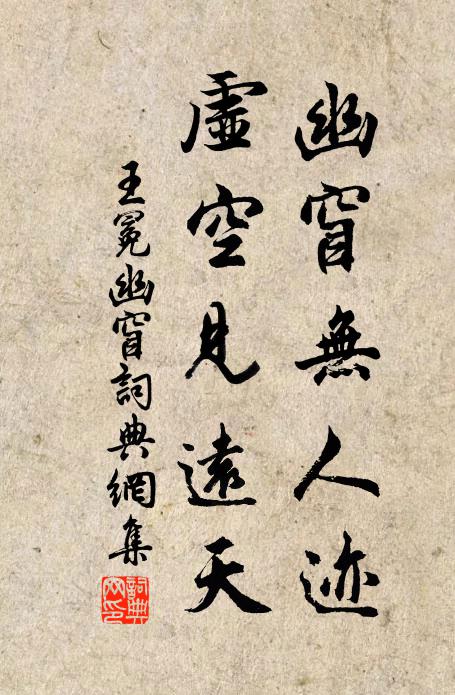 幽窅無人迹
虛空見遠天
王冕幽窅詞典網集
詞典網印